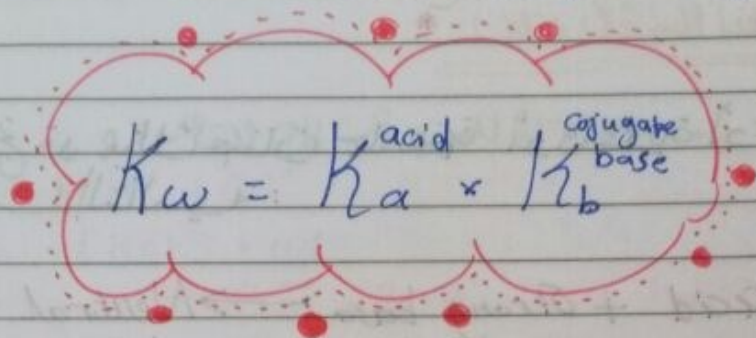 Kw = Ka acid × Kb cojugate base